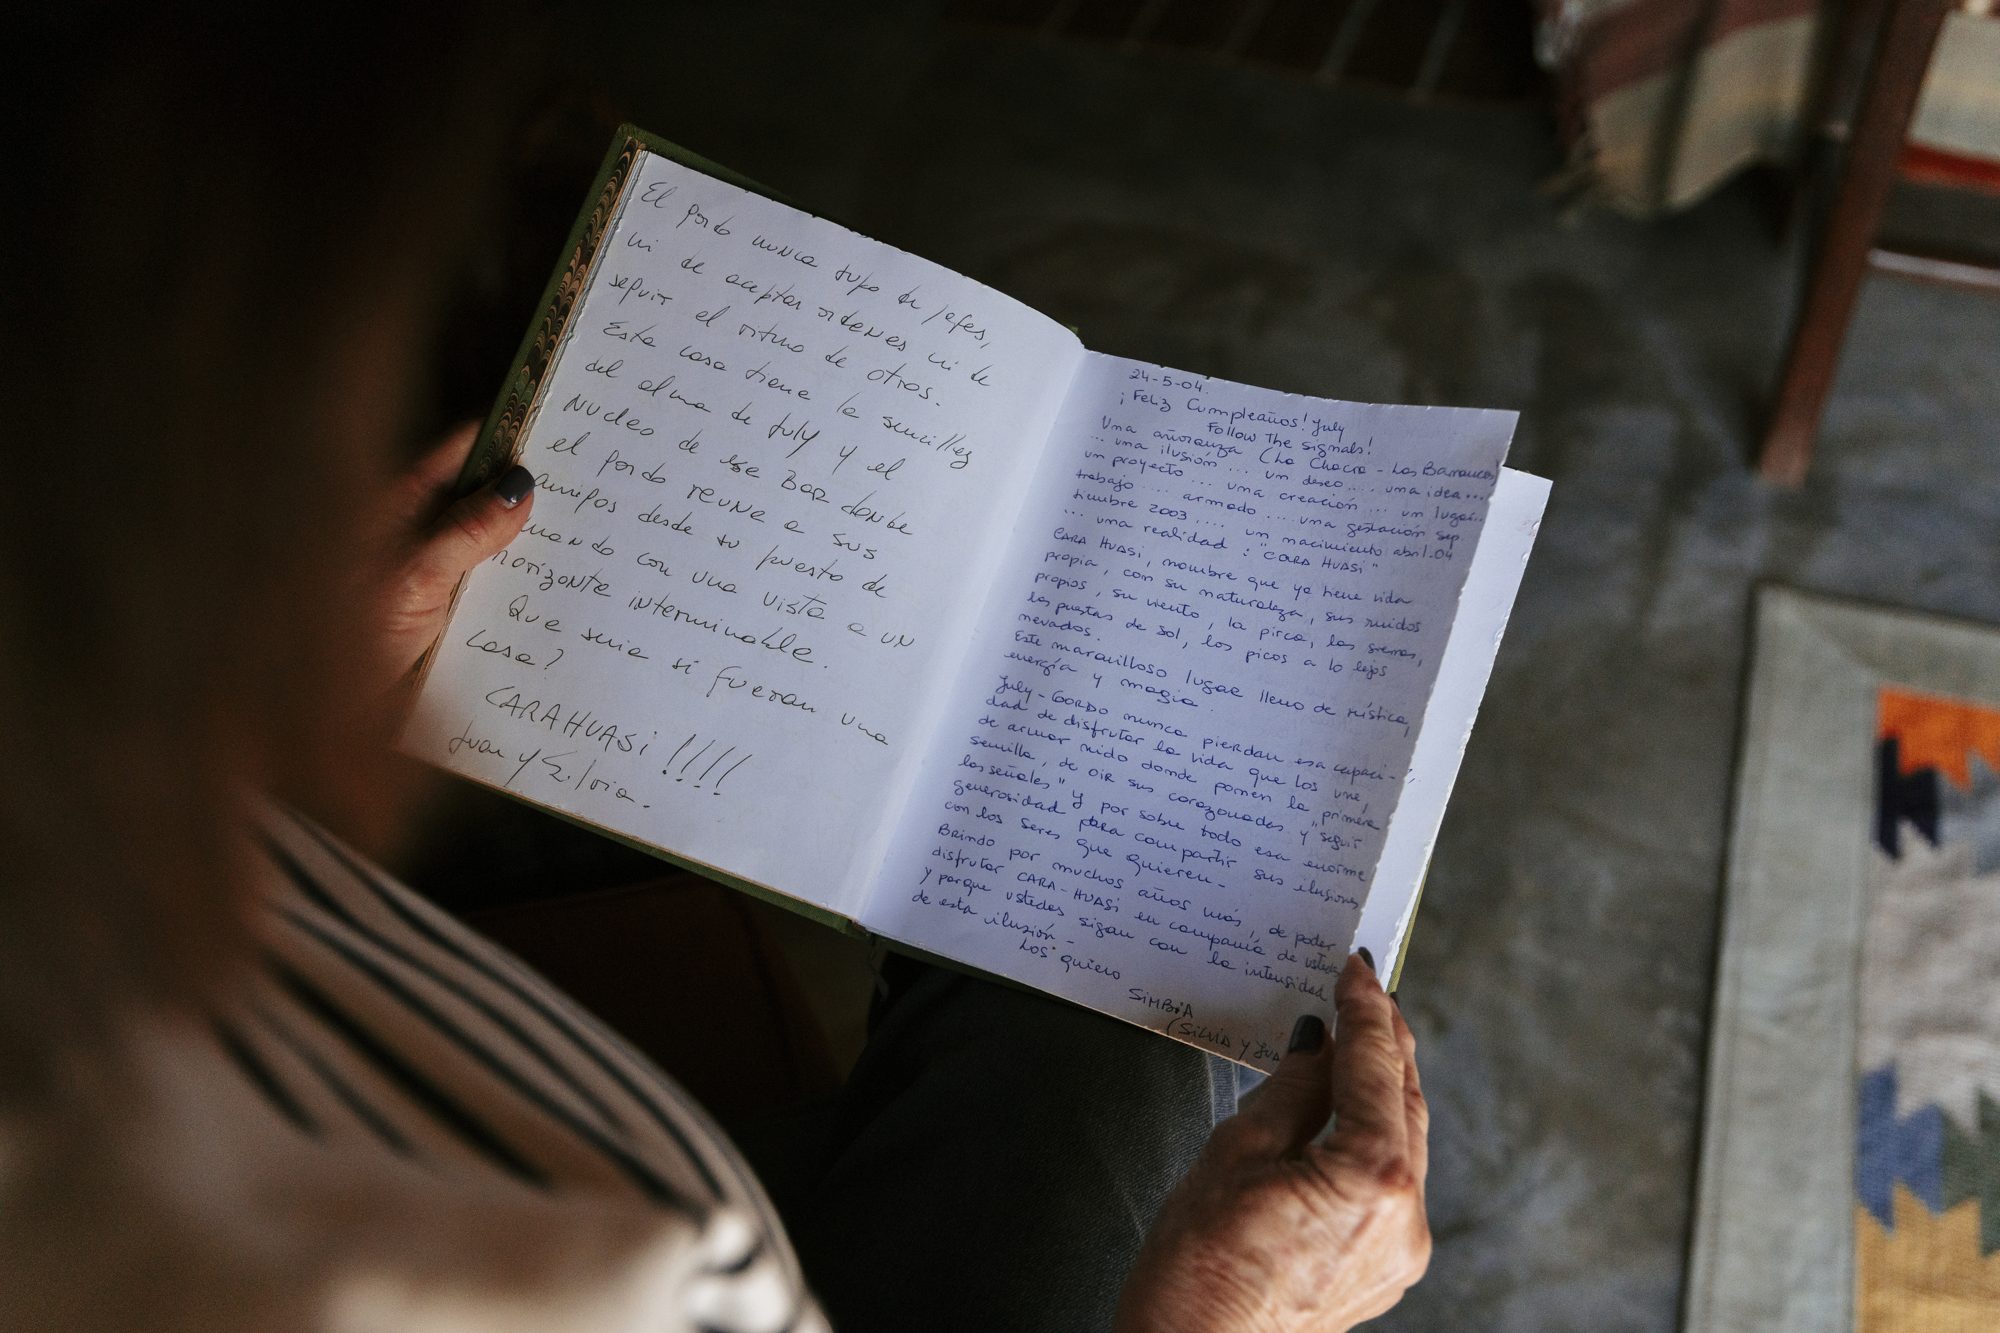 El gordo nunca supo de jefes,
ni de aceptar ordenes ni de
seguir el ritmo de otros.
Esta casa tiene la sencillez
del alma de July y el
NUCleo de ese BAR donde
el gordo reune a sus
amigos desde su puesto de
mando con una vista a un
horizonte interminable.
Que seria si fueran una
casa?
CARAHUASi !!!!
Juan y Silvia.
24-5-04.
¡Feliz Cumpleaños! July
Follow The signals!
Una añoranza (La Chacra - Las Barrancas)
... una ilusión ... un deseo ... una idea ...
un proyecto ... una creación ... un lugar..
trabajo .... armado ... una gestación sep
tiembre 2003 .... un nacimiento abril-04
... una realidad : "CARA HUASi"
CARA HUASi, nombre que ya tiene vida
propia, con su naturaleza, sus ruidos
propios, su viento, la pirca, las sierras,
las puestas de sol, los picos a lo lejos
nevados.
Este maravilloso lugar lleno de mística,
energía y magia.
July - GORDO nunca pierdan esa capaci-
dad de disfrutar la vida que los une,
de armar nido donde ponen la primera
semilla, de oir sus corazonadas y "seguir
las señales" y por sobre todo esa enorme
generosidad para compartir sus ilusiones
con los seres que quieren -
Brindo por muchos años más, de poder
disfrutar CARA-HUASi en compañía de ustedes
y porque ustedes sigan con la intensidad
de esta ilusión -
Los quiero
SiMBiA
(SilViA y JUA